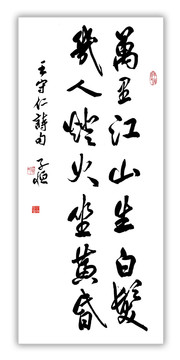 萬里江山生白髮
幾人燈火坐黃昏
王守仁詩句 子恒